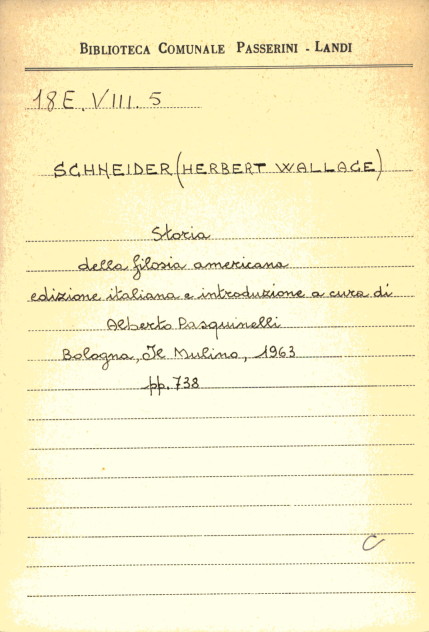 BIBLIOTECA COMUNALE PASSERINI - LANDI
18E. VIII. 5
SCHNEIDER (HERBERT WALLAGE)
Storia
della filosia americana
edizione italiana e introduzione a cura di
Alberto Pasquinelli
Bologna, Il Mulino, 1963
pp. 738
C